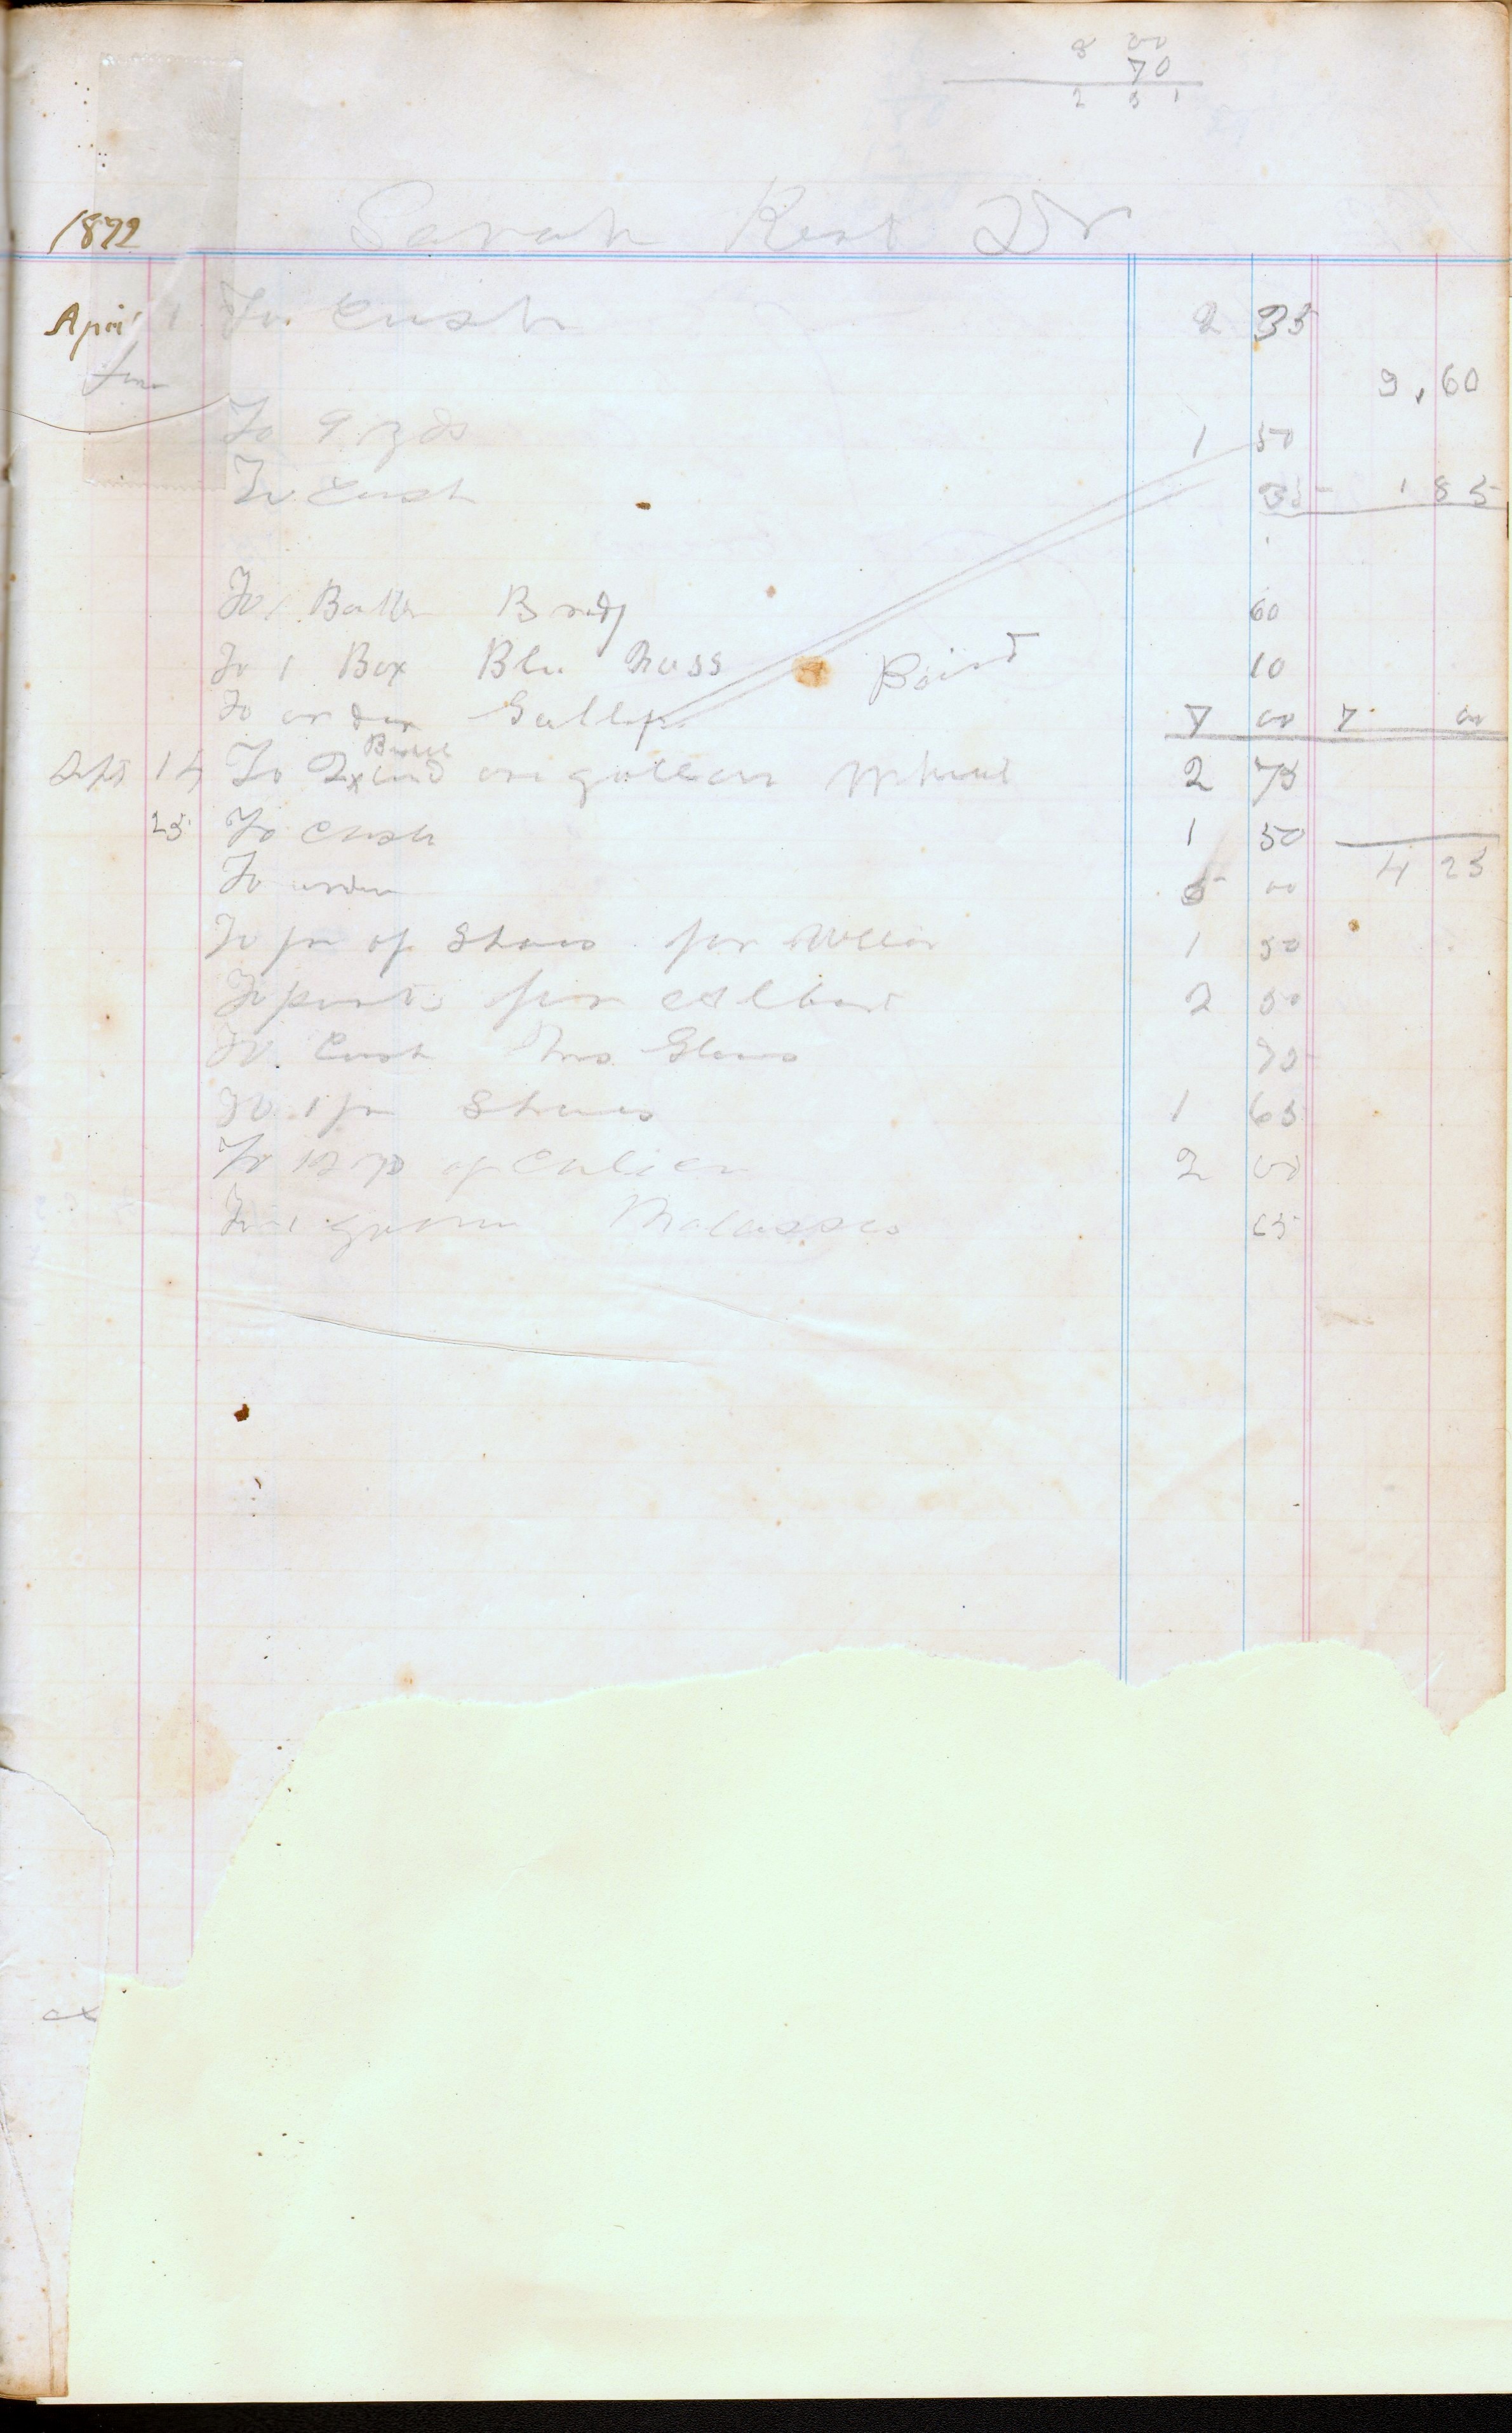 8 00
70
2 31
1872 Sarah Kest Dr
April 1 To Cash 2 35
9.60
To 9 yds 1 50
To Cash 35 1 85
To 1 Bottle Brady 60
To 1 Box Blu Mass 10
To order Gallup 7 00 7 00
Paid
Bushel
Sept 14 To 2 and one gallon Wheat 2 75
25 To Cash 1 50
To order 5 00 4 25
To pr of Shoes for 1 50
To pants for Albert 2 50
To Cash Mrs 75
To 1 pr Shoes 1 65
To 12 yd of Calico 2 00
To 1 Molasses 65